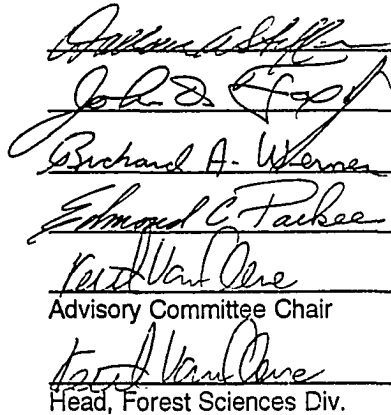 John D. Fox
Richard A. Werner
Edmond C. Packee
Keith Van Cleve
Advisory Committee Chair
Keith Van Cleve
Head, Forest Sciences Div.